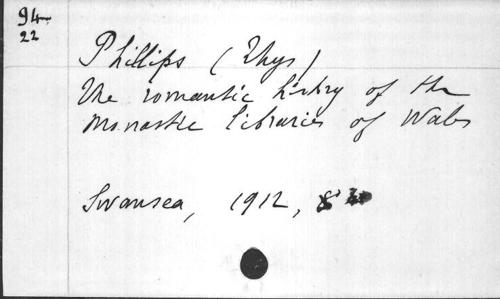 94
22
Phillips (Rhys)
The romantic history of the
Monastic libraries of Wales
Swansea, 1912, 8